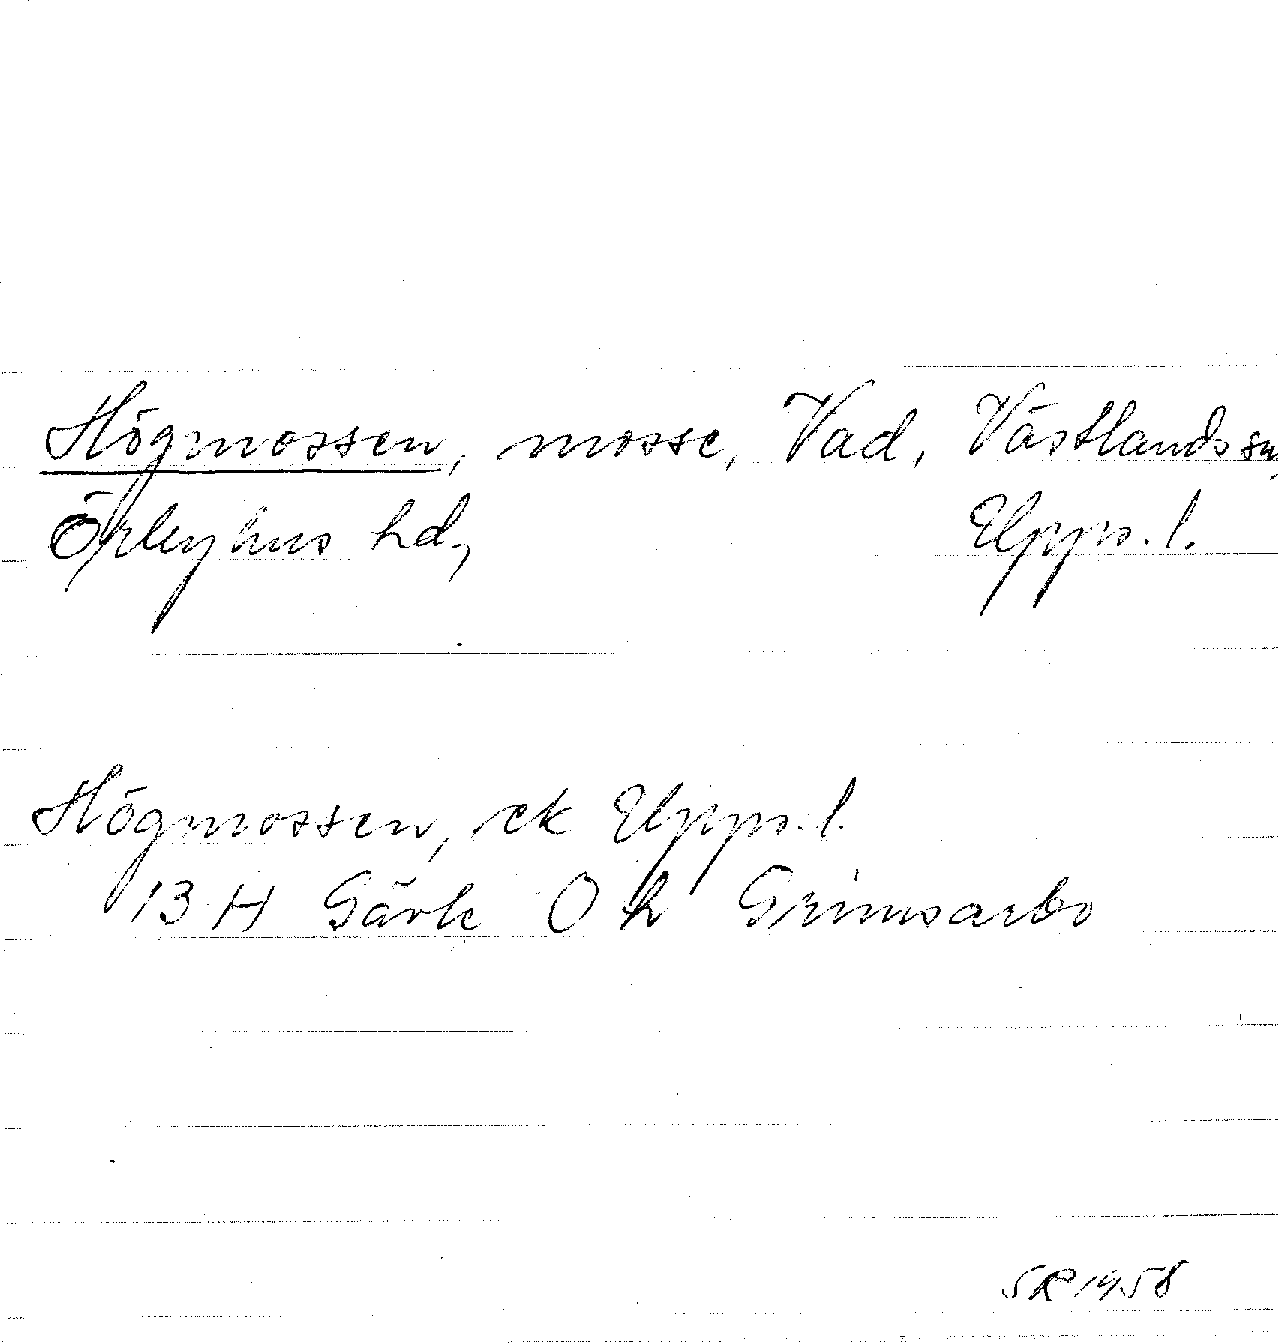 Högmossen, mosse, Vad, Västlands sn,
Örbyhus hd, Upps. l.
Högmossen, ek Upps. l.
13 H Gävle O h Grimsarbo
SR 1958